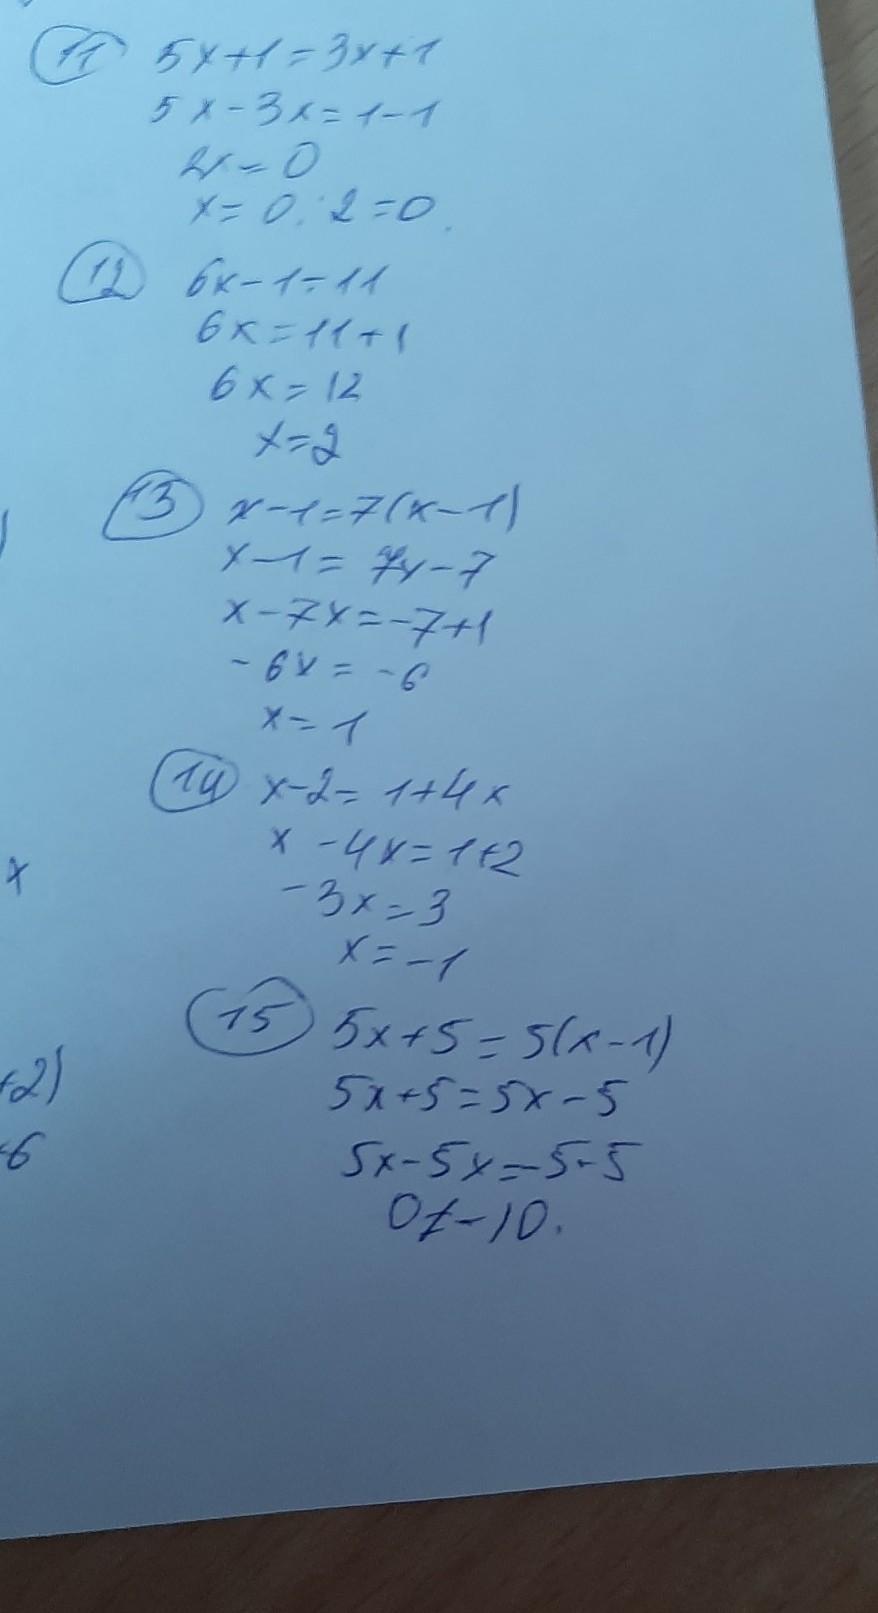 11 5x+1=3x+1
5x-3x=1-1
2x=0
x=0:2=0.
12 6x-1=11
6x=11+1
6x=12
x=2
13 x-1=7(x-1)
x-1=7x-7
x-7x=-7+1
-6x=-6
x=1
14 x-2=1+4x
x-4x=1+2
-3x=3
x=-1
x
15 5x+5=5(x-1)
+2) 5x+5=5x-5
-6 5x-5x=-5-5
0≠-10.